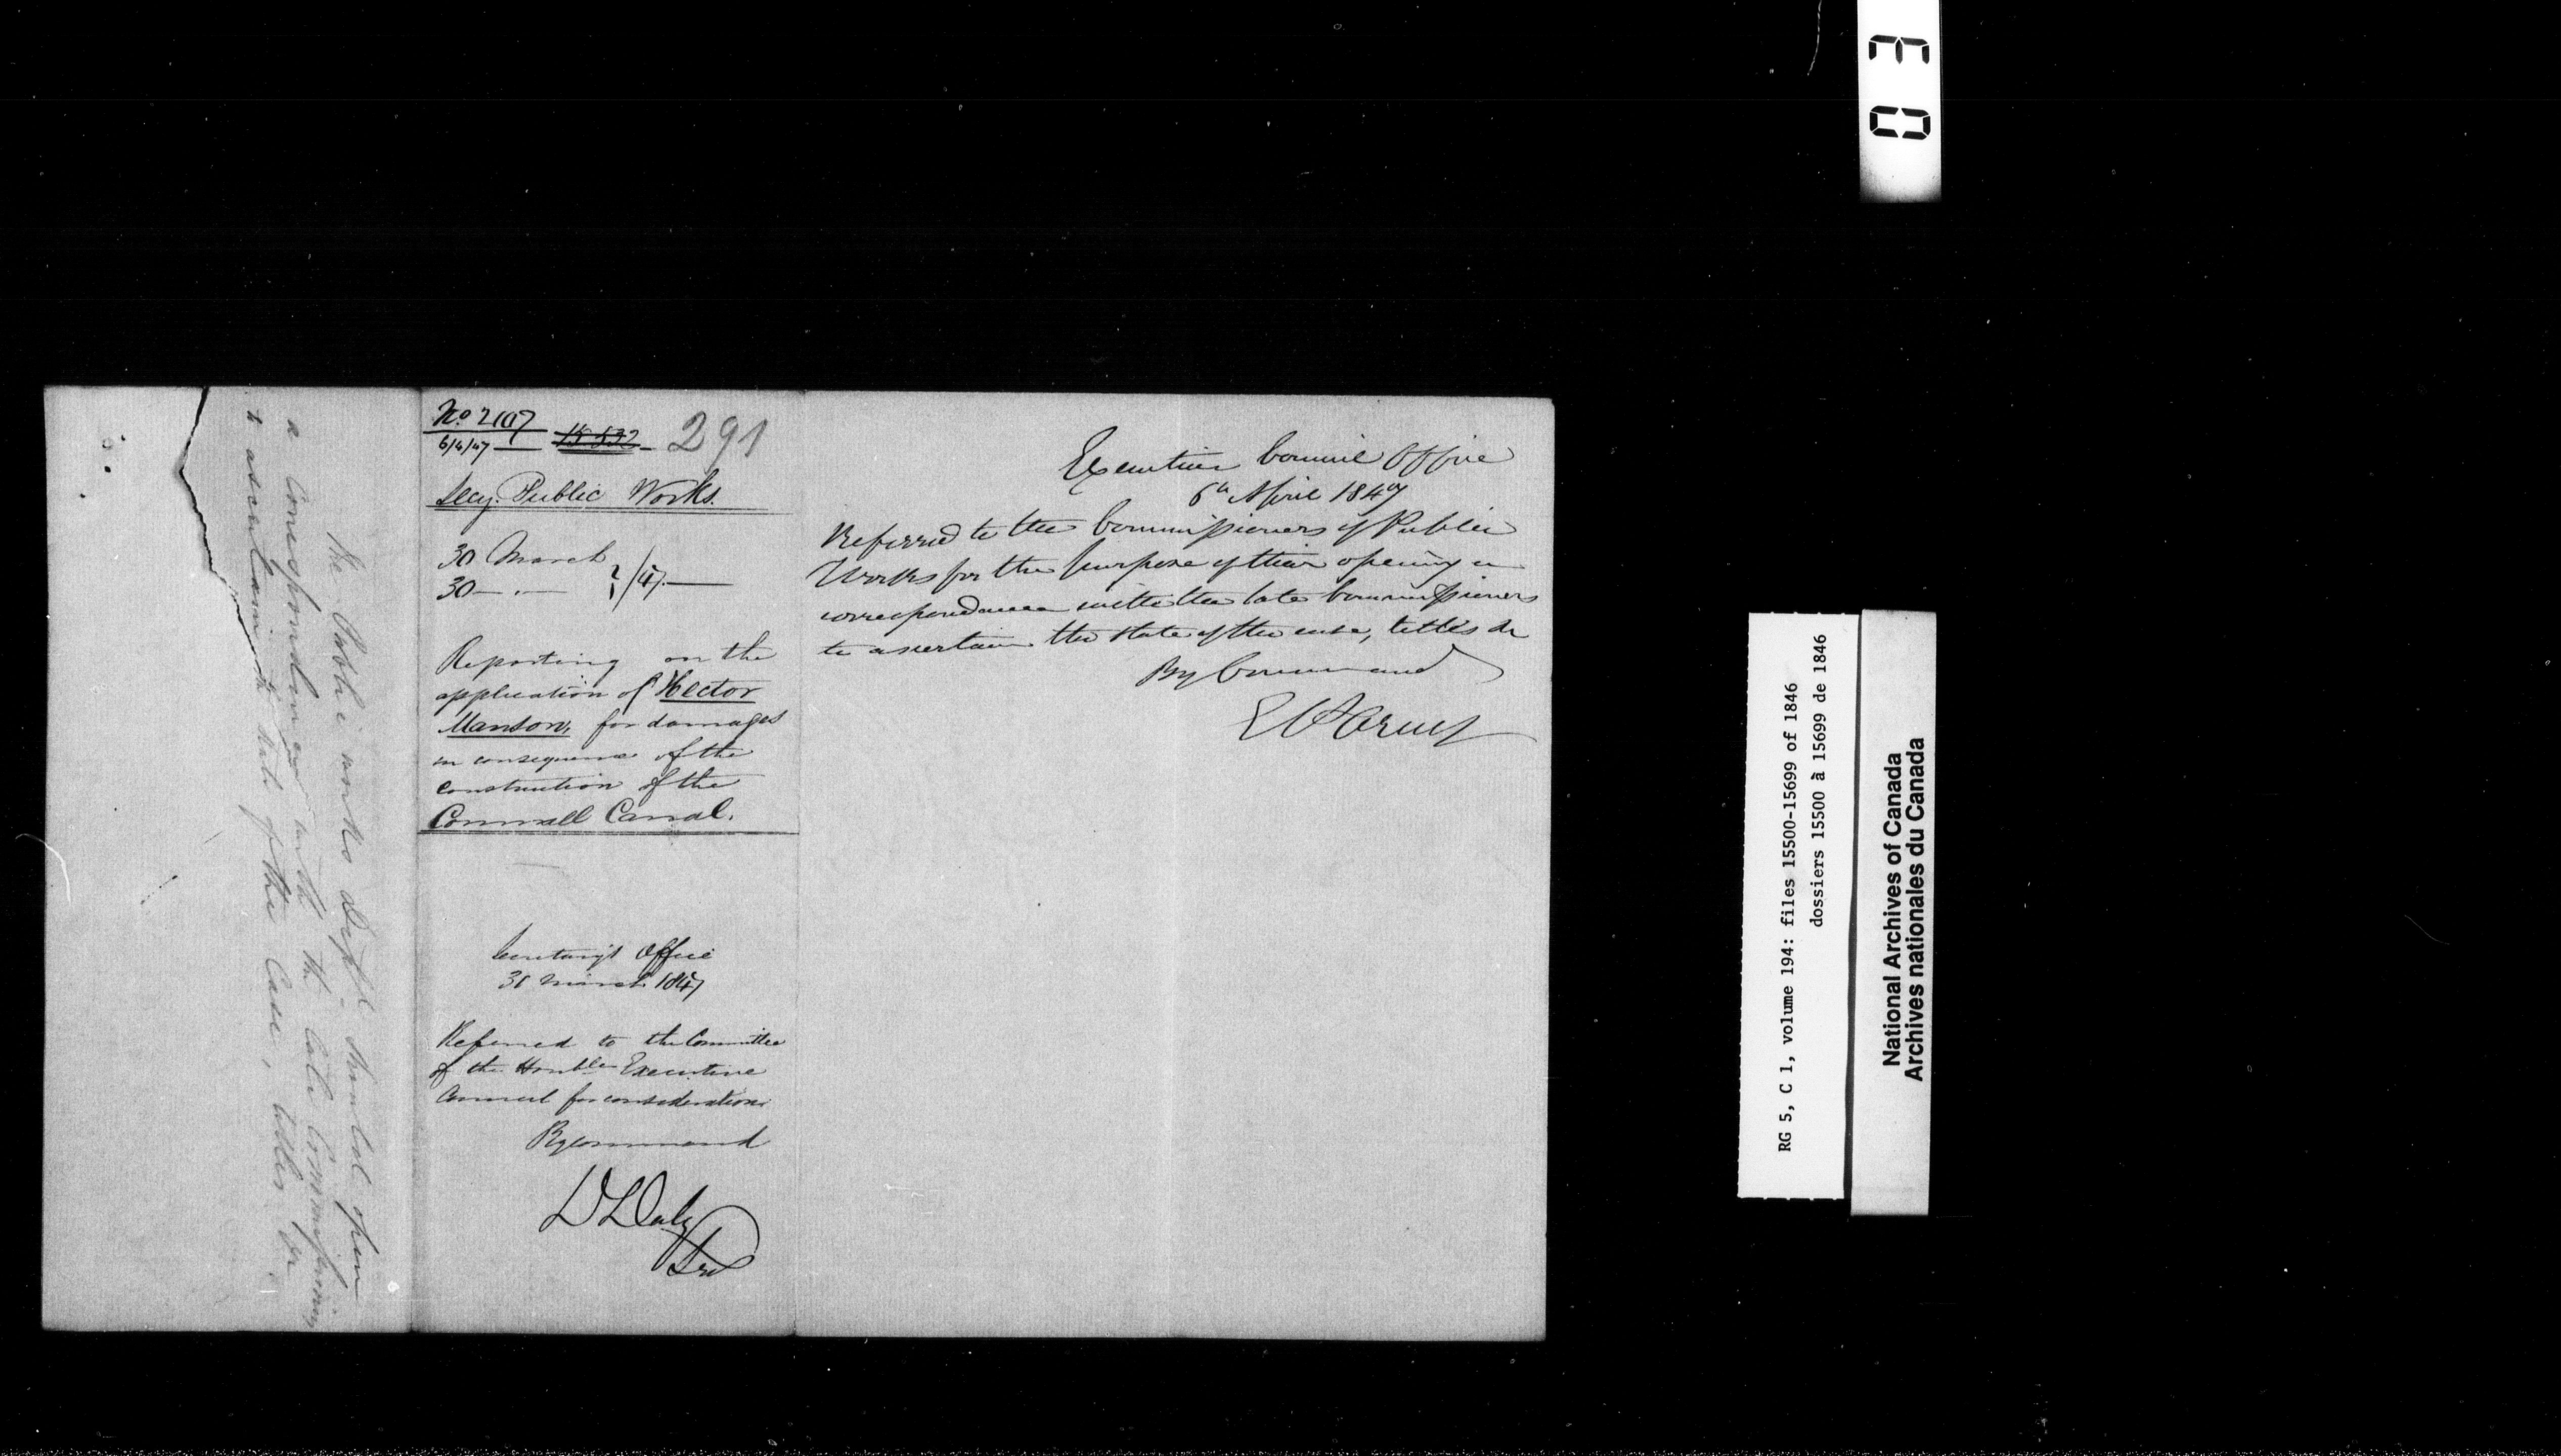 03
The Public works Dept should open
a correspondence with the late Commissioners
to ascertain the state of the Case, titles &c
No 2107
6/4/47 — 15532 — 291
Secy. Public Works.
30 March
30 — " — } /47.—
Reporting on the
application of Hector
Manson, for damages
in consequence of the
construction of the
Cornwall Canal.
Secretary's Office
31 March 1847
Referred to the Committee
of the Honble Executive
Council for consideration
By command
D Daly
Sec
Executive Council Office
6th April 1847
Referred to the Commissioners of Public
Works for the purpose of their opening a
correspondence with the late Commissioners
to ascertain the state of the case, titles &c
By Command
E Parent
RG 5, C 1, volume 194: files 15500-15699 of 1846
dossiers 15500 à 15699 de 1846
National Archives of Canada
Archives nationales du Canada